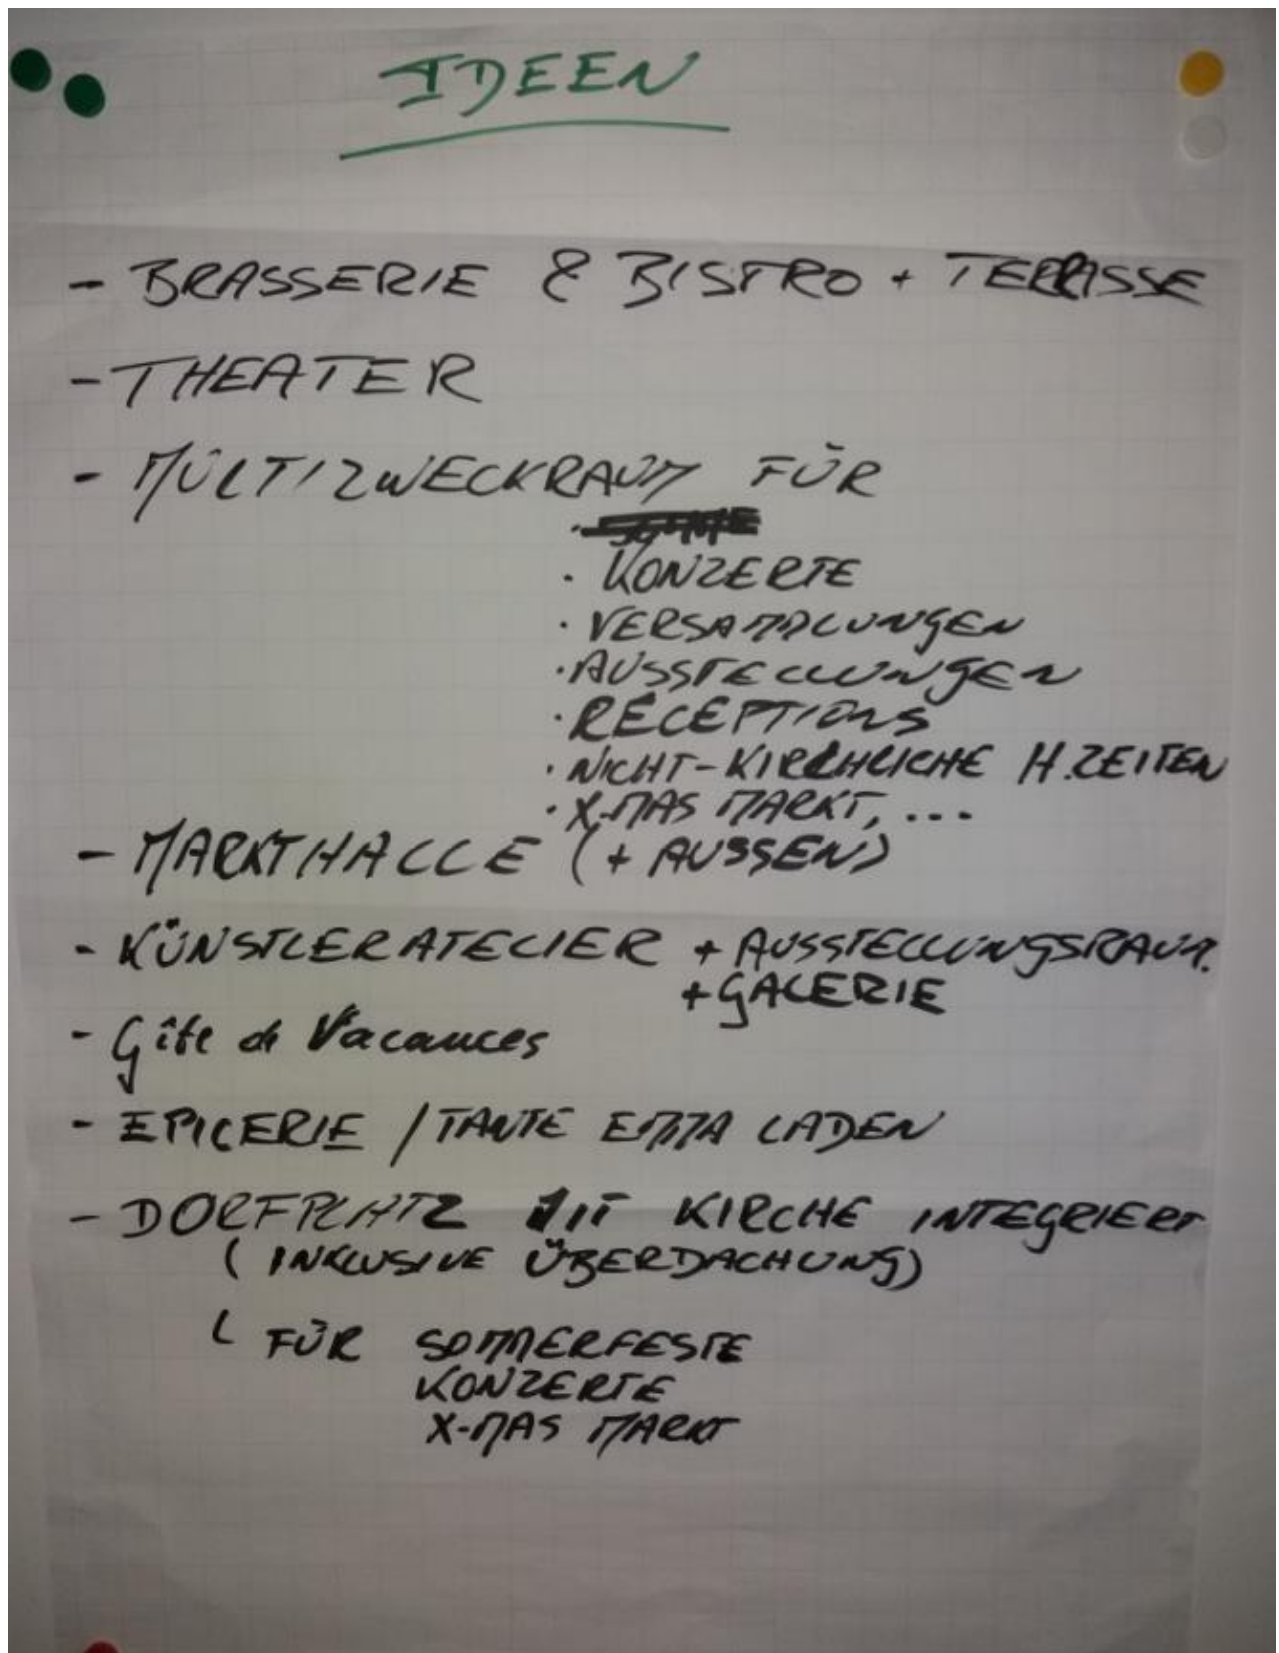 IDEEN
- BRASSERIE & BISTRO + TERRASSE
- THEATER
- MULTIZWECKRAUM FÜR
· KONZERTE
· VERSAMMLUNGEN
· AUSSTELLUNGEN
· RÉCEPTIONS
· NICHT-KIRCHLICHE H.ZEITEN
· X-MAS MARKT, ...
- MARKTHALLE (+ AUSSEN)
- KÜNSTLERATELIER + AUSSTELLUNGSRAUM.
+ GALERIE
- Gîte de Vacances
- EPICERIE / TANTE EMMA LADEN
- DORFPLATZ MIT KIRCHE INTEGRIERT
( INKLUSIVE ÜBERDACHUNG)
FÜR SOMMERFESTE
KONZERTE
X-MAS MARKT